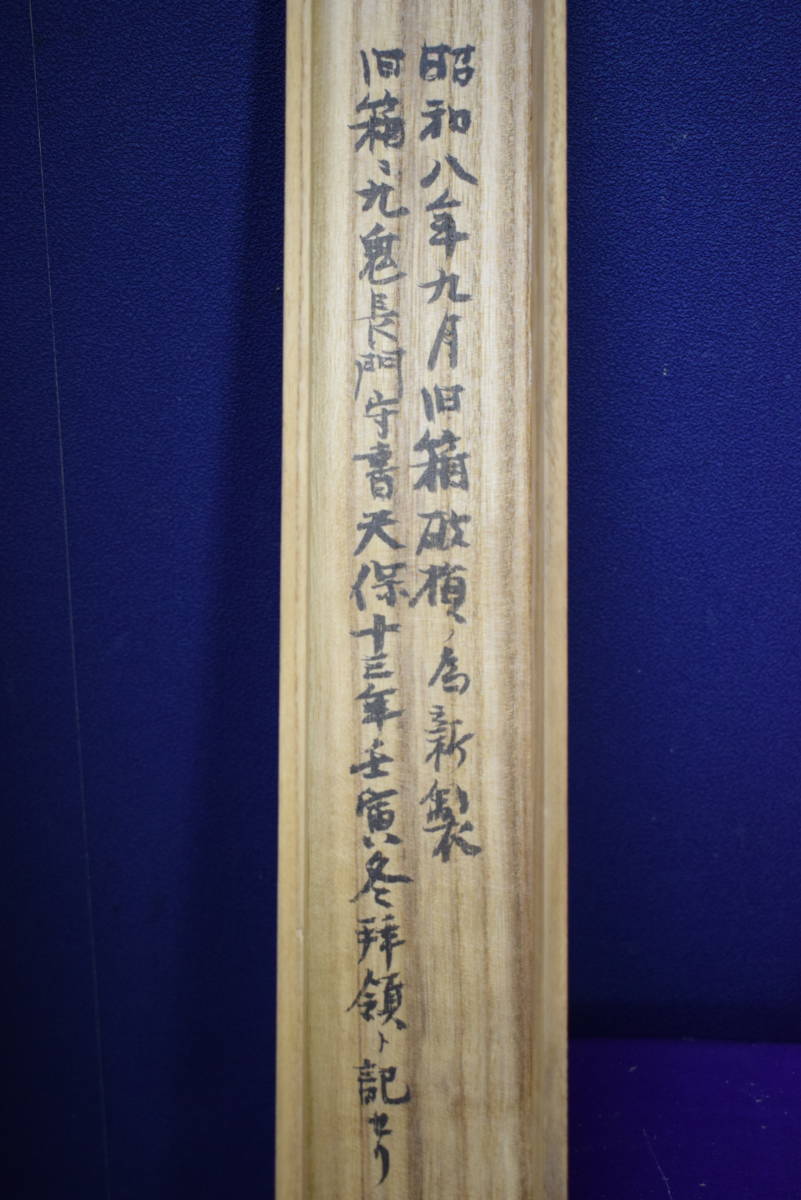 昭和八年九月旧箱破損ノ為新製
旧箱ニ九鬼長門守書天保十三年壬寅冬拝領ト記セリ